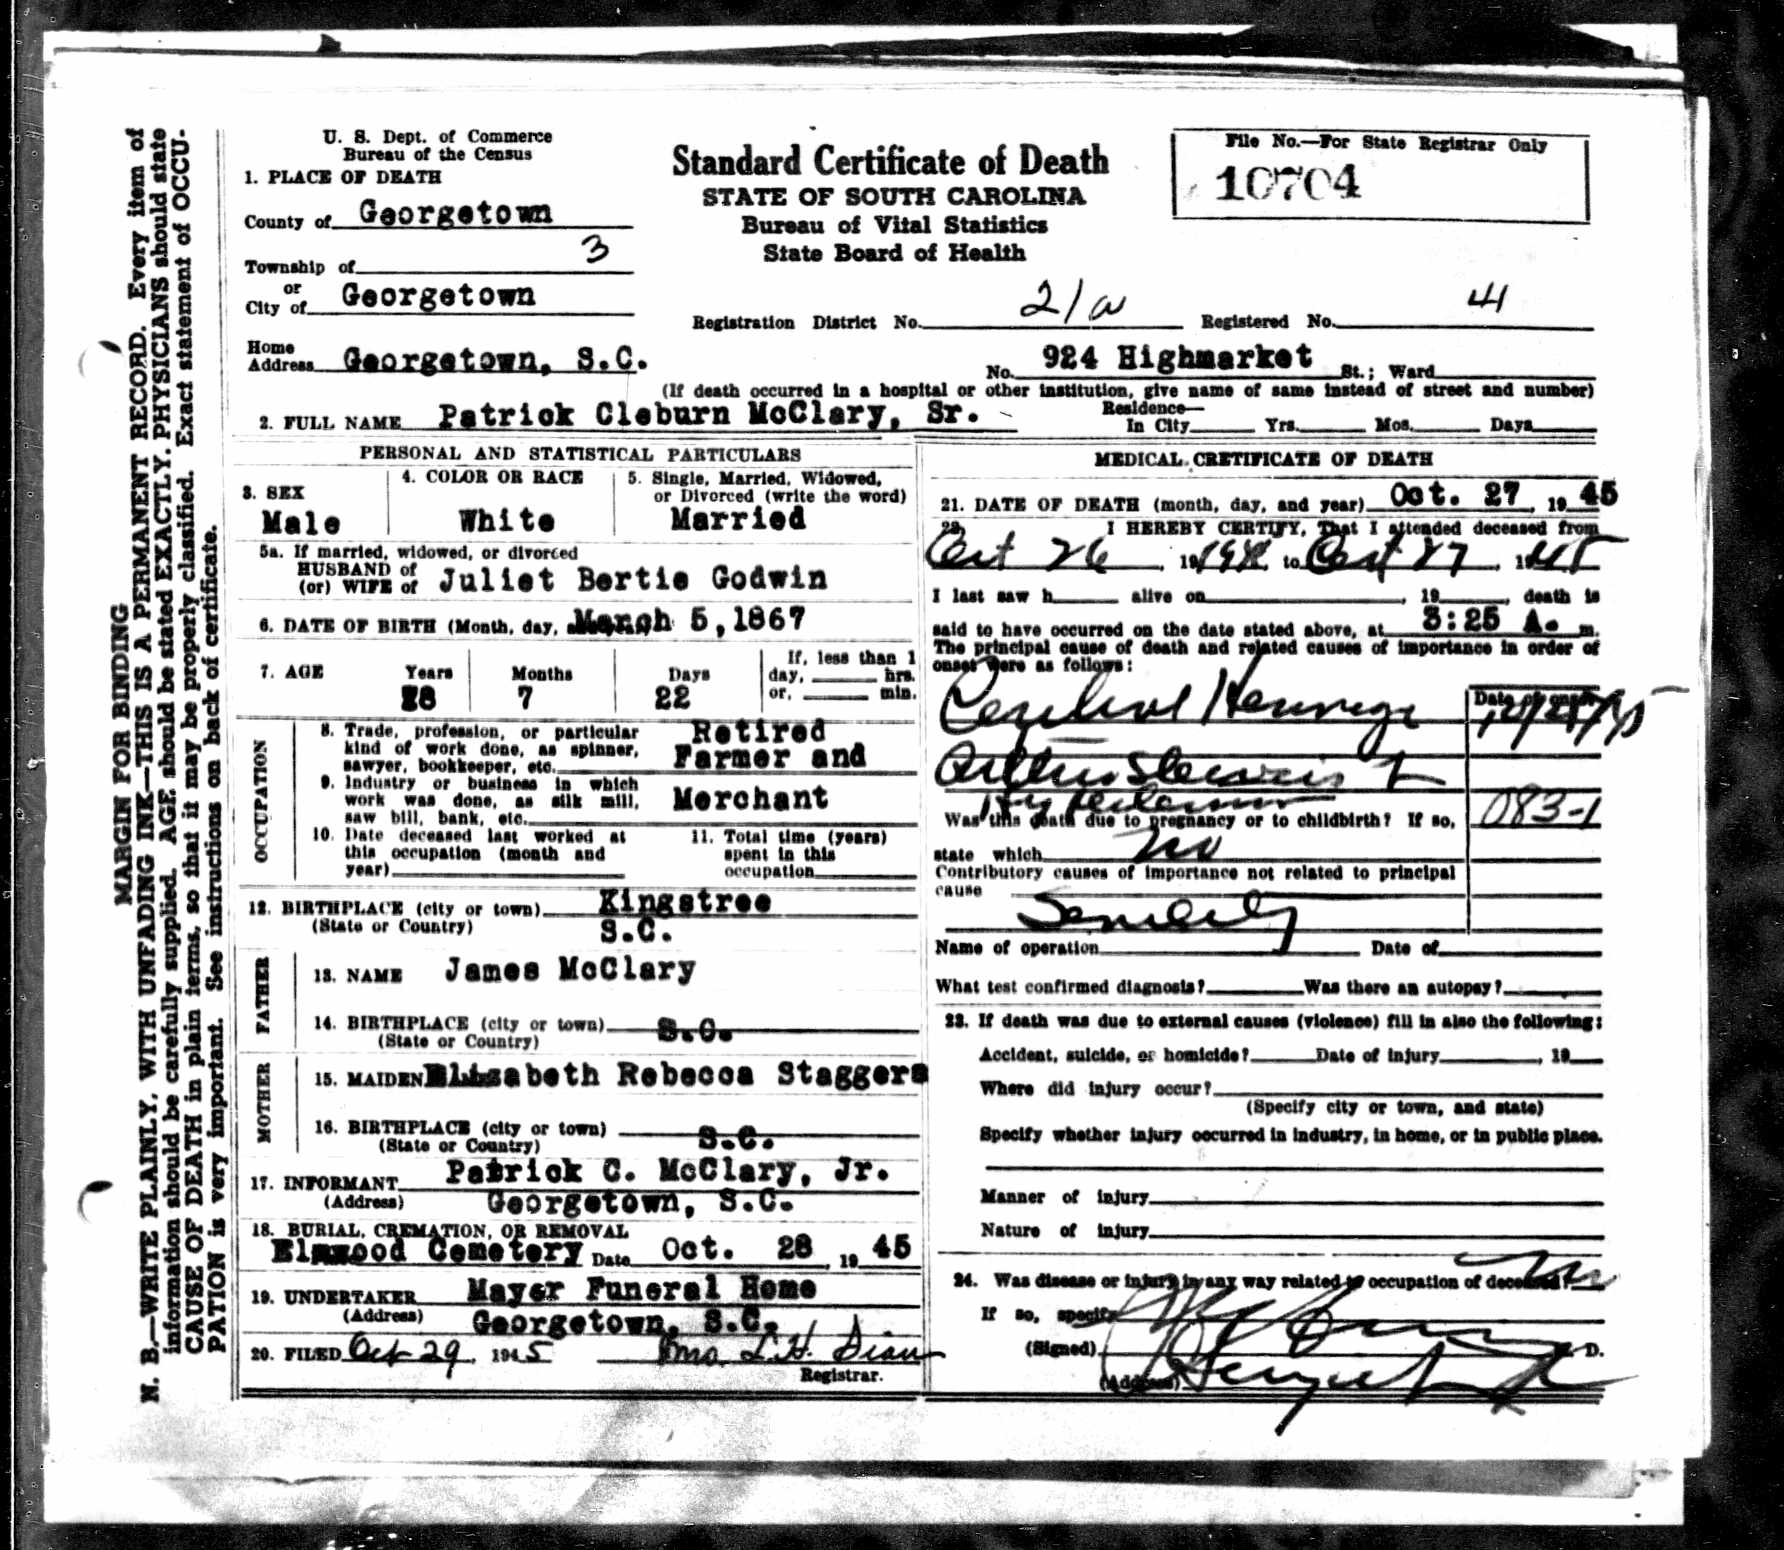 MARGIN FOR BINDING
N. B.—WRITE PLAINLY, WITH UNFADING INK—THIS IS A PERMANENT RECORD. Every item of
information should be carefully supplied. AGE should be stated EXACTLY. PHYSICIANS should state
CAUSE OF DEATH in plain terms, so that it may be properly classified. Exact statement of OCCU-
PATION is very important. See instructions on back of certificate.
U. S. Dept. of Commerce
Bureau of the Census
Standard Certificate of Death
STATE OF SOUTH CAROLINA
Bureau of Vital Statistics
State Board of Health
File No.—For State Registrar Only
10704
1. PLACE OF DEATH
County of Georgetown
Township of 3
or
City of Georgetown
Registration District No. 21a Registered No. 41
Home
Address Georgetown, S.C.
No. 924 Highmarket St.; Ward
(If death occurred in a hospital or other institution, give name of same instead of street and number)
2. FULL NAME Patrick Cleburn McClary, Sr.
Residence—
In City Yrs. Mos. Days
PERSONAL AND STATISTICAL PARTICULARS
3. SEX
Male
4. COLOR OR RACE
White
5. Single, Married, Widowed,
or Divorced (write the word)
Married
5a. If married, widowed, or divorced
HUSBAND of
(or) WIFE of Juliet Bertie Godwin
6. DATE OF BIRTH (Month, day, March 5, 1867
7. AGE Years Months Days If, less than 1
day, hrs.
or, min.
78 7 22
OCCUPATION
8. Trade, profession, or particular
kind of work done, as spinner,
sawyer, bookkeeper, etc.
Retired
Farmer and
9. Industry or business in which
work was done, as silk mill,
saw bill, bank, etc.
Merchant
10. Date deceased last worked at
this occupation (month and
year)
11. Total time (years)
spent in this
occupation
12. BIRTHPLACE (city or town) Kingstree
(State or Country) S.C.
FATHER
13. NAME James McClary
14. BIRTHPLACE (city or town) S.C.
(State or Country)
MOTHER
15. MAIDEN Elizabeth Rebecca Staggers
16. BIRTHPLACE (city or town) S.C.
(State or Country)
17. INFORMANT Patrick C. McClary, Jr.
(Address) Georgetown, S.C.
18. BURIAL, CREMATION, OR REMOVAL
Elmwood Cemetery Date Oct. 28, 1945
19. UNDERTAKER Mayer Funeral Home
(Address) Georgetown, S.C.
20. FILED Oct 29, 1945 Mrs. L.H.
Registrar.
MEDICAL CRETIFICATE OF DEATH
21. DATE OF DEATH (month, day, and year) Oct. 27, 1945
22. I HEREBY CERTIFY, That I attended deceased from
Oct 26, 19 to Oct 27, 1945
I last saw h alive on , 19 , death is
said to have occurred on the date stated above, at 3:25 A. m.
The principal cause of death and related causes of importance in order of
onset were as follows:
Date of onset
083-1
Was this death due to pregnancy or to childbirth? If so,
state which no
Contributory causes of importance not related to principal
cause
Senility
Name of operation Date of
What test confirmed diagnosis? Was there an autopsy?
23. If death was due to external causes (violence) fill in also the following:
Accident, suicide, or homicide? Date of injury , 19
Where did injury occur?
(Specify city or town, and state)
Specify whether injury occurred in industry, in home, or in public place.
Manner of injury
Nature of injury
24. Was disease or injury in any way related to occupation of deceased? no
If so, specify
(Signed) D.
(Address)